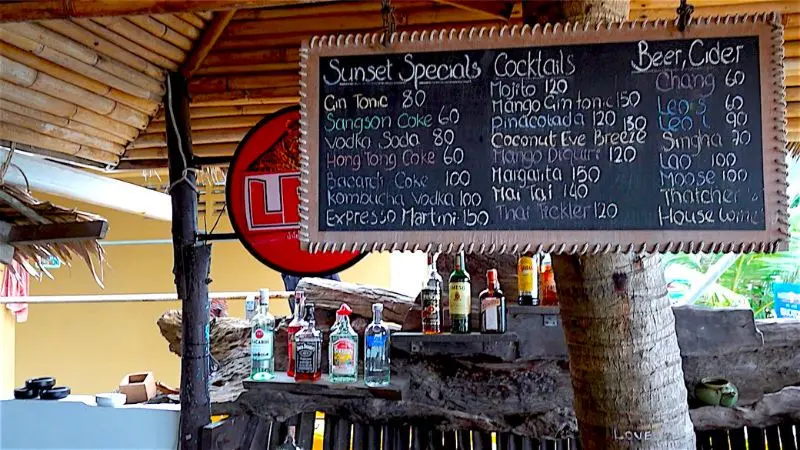 Sunset Specials
Gin Tonic 80
Sangson Coke 60
Vodka Soda 80
Hong Tong Coke 60
Bacardi Coke 100
Kombucha Vodka 100
Expresso Martini 150
Cocktails
Mojito 120
Mango Gin tonic 150
Pinacolada 120
Coconut Eve Breeze
Mango Diquiri 120
Margarita 150
Mai Tai 140
Thai Tickler 120
Beer, Cider
Chang 60
Leo S 60
Leo L 90
Singha 70
Lao 100
Moose 100
Thatcher
House wine
BACARDI
LOVE